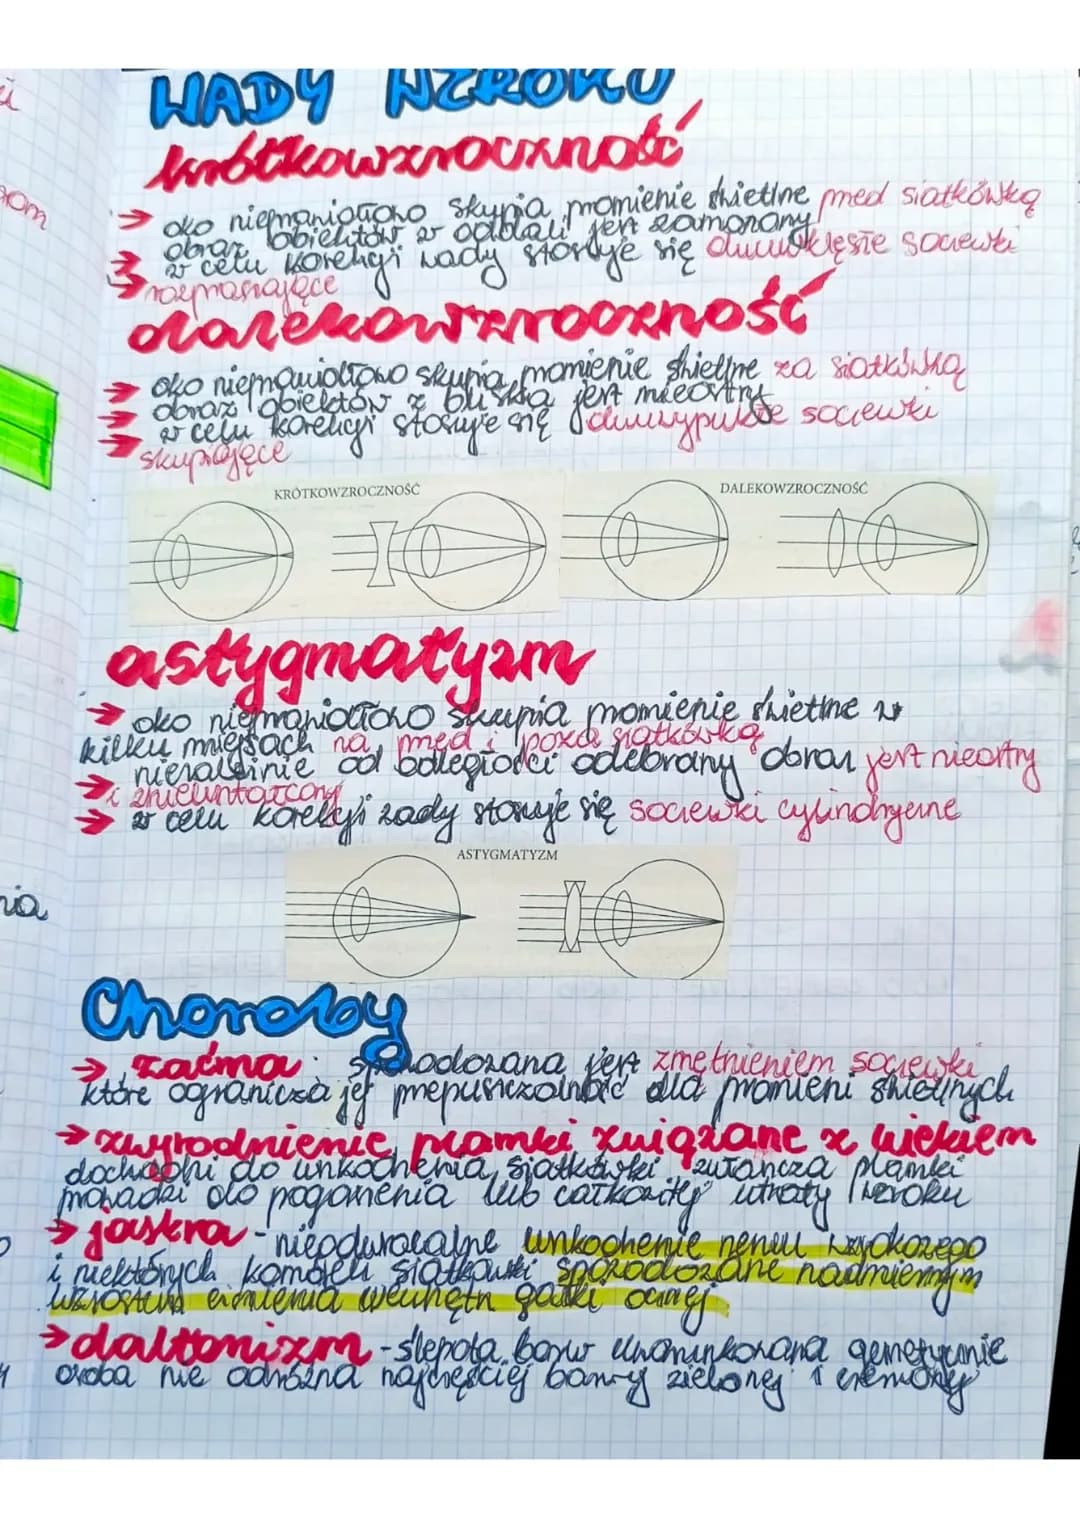 WADY WZROKU
krótkowzroczność
→ oko nieprawidłowo skupia promienie świetlne przed siatkówką
→ obraz obiektów w oddali jest zamazany
→ w celu korekcji wady stosuje się dwuwklęsłe soczewki
rozpraszające
dalekowzroczność
→ oko nieprawidłowo skupia promienie świetlne za siatkówką
→ obraz obiektów z bliska jest nieostry
→ w celu korekcji stosuje się dwuwypukłe soczewki
skupiające
KRÓTKOWZROCZNOŚĆ
DALEKOWZROCZNOŚĆ
astygmatyzm
→ oko nieprawidłowo skupia promienie świetlne w
kilku miejscach na, przed i poza siatkówką
→ niezależnie od odległości odebrany obraz jest nieostry
i zniekształcony
→ w celu korekcji wady stosuje się soczewki cylindryczne
ASTYGMATYZM
Choroby
→ zaćma: spowodowana jest zmętnieniem soczewki
które ogranicza jej przepuszczalność dla promieni świetlnych
→ zwyrodnienie plamki związane z wiekiem
dochodzi do uszkodzenia siatkówki, zwłaszcza plamki
prowadzi do pogorszenia lub całkowitej utraty wzroku
→ jaskra - nieodwracalne uszkodzenie nerwu wzrokowego
i niektórych komórek siatkówki spowodowane nadmiernym
wzrostem ciśnienia wewnątrz gałki ocznej
→ daltonizm - ślepota barw uwarunkowana genetycznie
osoba nie odróżnia najczęściej barwy zielonej i czerwonej